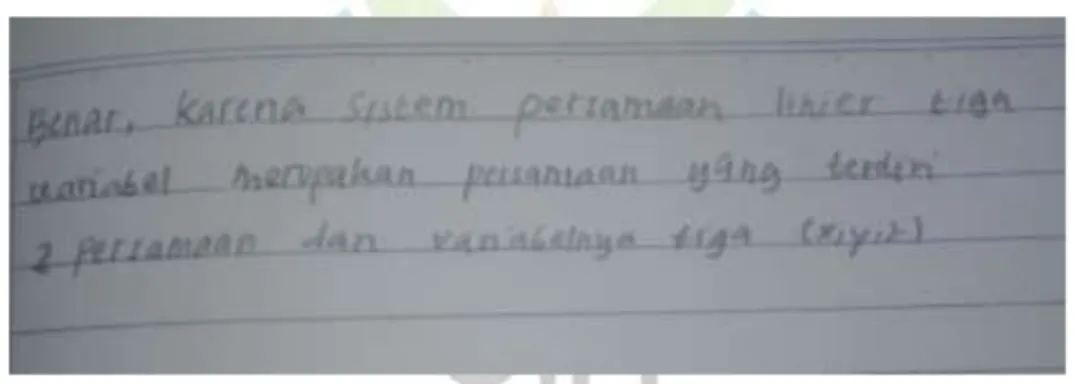 Benar, karena sistem persamaan linier tiga
variabel merupakan persamaan yang terdiri
2 persamaan dan variabelnya tiga (x,y,z)